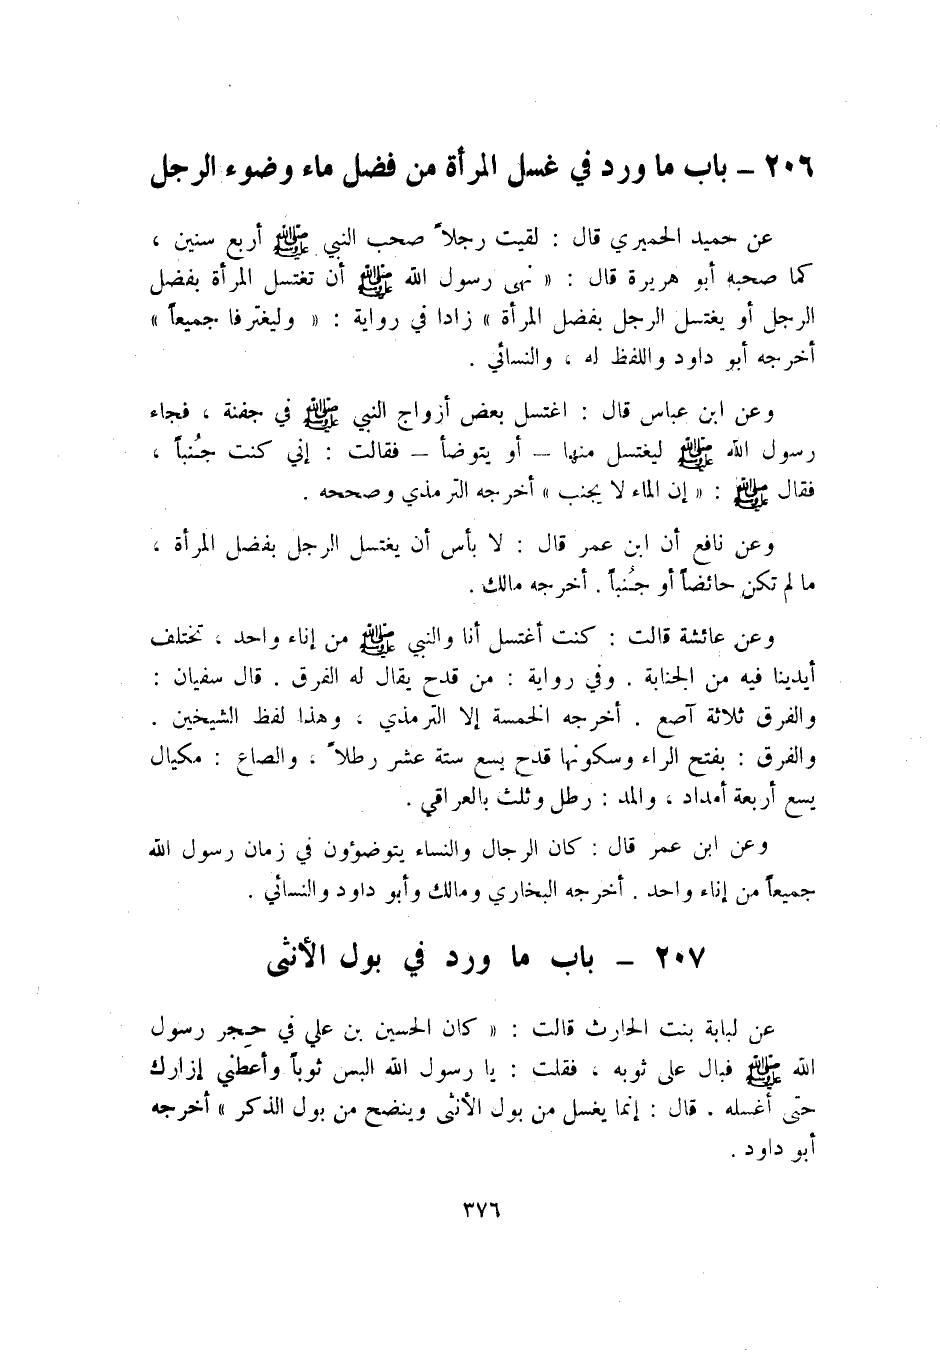 ٢٠٦ – باب ما ورد في غسل المرأة من فضل ماء وضوء الرجل
عن حميد الحميري قال : لقيت رجلاً صحب النبي ﷺ أربع سنين ،
كما صحبه أبو هريرة قال : « نهى رسول الله ﷺ أن تغتسل المرأة بفضل
الرجل أو يغتسل الرجل بفضل المرأة » زادا في رواية : « وليغترفا جميعاً »
أخرجه أبو داود واللفظ له ، والنسائي .
وعن ابن عباس قال : اغتسل بعض أزواج النبي ﷺ في جفنة ، فجاء
رسول الله ﷺ ليغتسل منها – أو يتوضأ – فقالت : إني كنت جُنباً ،
فقال ﷺ : « إن الماء لا يجنب » أخرجه الترمذي وصححه .
وعن نافع أن ابن عمر قال : لا بأس أن يغتسل الرجل بفضل المرأة ،
ما لم تكن حائضاً أو جُنباً . أخرجه مالك .
وعن عائشة قالت : كنت أغتسل أنا والنبي ﷺ من إناء واحد ، تختلف
أيدينا فيه من الجنابة . وفي رواية : من قدح يقال له الفرق . قال سفيان :
والفرق ثلاثة آصع . أخرجه الخمسة إلا الترمذي ، وهذا لفظ الشيخين .
والفرق : بفتح الراء وسكونها قدح يسع ستة عشر رطلاً ، والصاع : مكيال
يسع أربعة أمداد ، والمد : رطل وثلث بالعراقي .
وعن ابن عمر قال : كان الرجال والنساء يتوضؤون في زمان رسول الله
جميعاً من إناء واحد . أخرجه البخاري ومالك وأبو داود والنسائي .
٢٠٧ – باب ما ورد في بول الأنثى
عن لبابة بنت الحارث قالت : « كان الحسين بن علي في حِجر رسول
الله ﷺ فبال على ثوبه ، فقلت : يا رسول الله البس ثوباً وأعطني إزارك
حتى أغسله . قال : إنما يغسل من بول الأنثى وينضح من بول الذكر » أخرجه
أبو داود .
٣٧٦